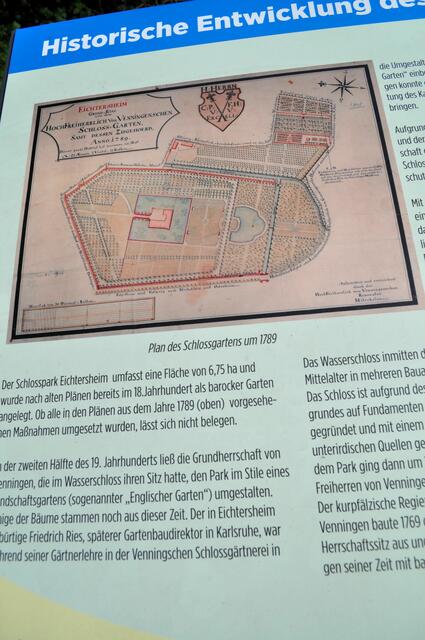 Historische Entwicklung des
EICHTERSHEIM
HOCHFREIHERRLICH VON VENNINGENSCHEN
SCHLOSS-GARTEN
SAMT DESSEN ZUGEHOERD.
ANNO. 1789.
H. HERRN
C.P. F.H.
V.
EXCELL:
Plan des Schlossgartens um 1789
Der Schlosspark Eichtersheim umfasst eine Fläche von 6,75 ha und
wurde nach alten Plänen bereits im 18.Jahrhundert als barocker Garten
angelegt. Ob alle in den Plänen aus dem Jahre 1789 (oben) vorgesehe-
nen Maßnahmen umgesetzt wurden, lässt sich nicht belegen.
n der zweiten Hälfte des 19. Jahrhunderts ließ die Grundherrschaft von
enningen, die im Wasserschloss ihren Sitz hatte, den Park im Stile eines
ndschaftsgartens (sogenannter „Englischer Garten") umgestalten.
nige der Bäume stammen noch aus dieser Zeit. Der in Eichtersheim
bürtige Friedrich Ries, späterer Gartenbaudirektor in Karlsruhe, war
hrend seiner Gärtnerlehre in der Venningschen Schlossgärtnerei in
die Umgestalt
Garten" einbe
gen konnte
tung des Ka
bringen.
Aufgrund
und der
schaft
Schlos
schut
Mit
ein
da
li
Das Wasserschloss inmitten d
Mittelalter in mehreren Baua
Das Schloss ist aufgrund des
grundes auf Fundamenten
gegründet und mit einem
unterirdischen Quellen ge
dem Park ging dann um
Freiherren von Venninge
Der kurpfälzische Regie
Venningen baute 1769 d
Herrschaftssitz aus und
gen seiner Zeit mit ba